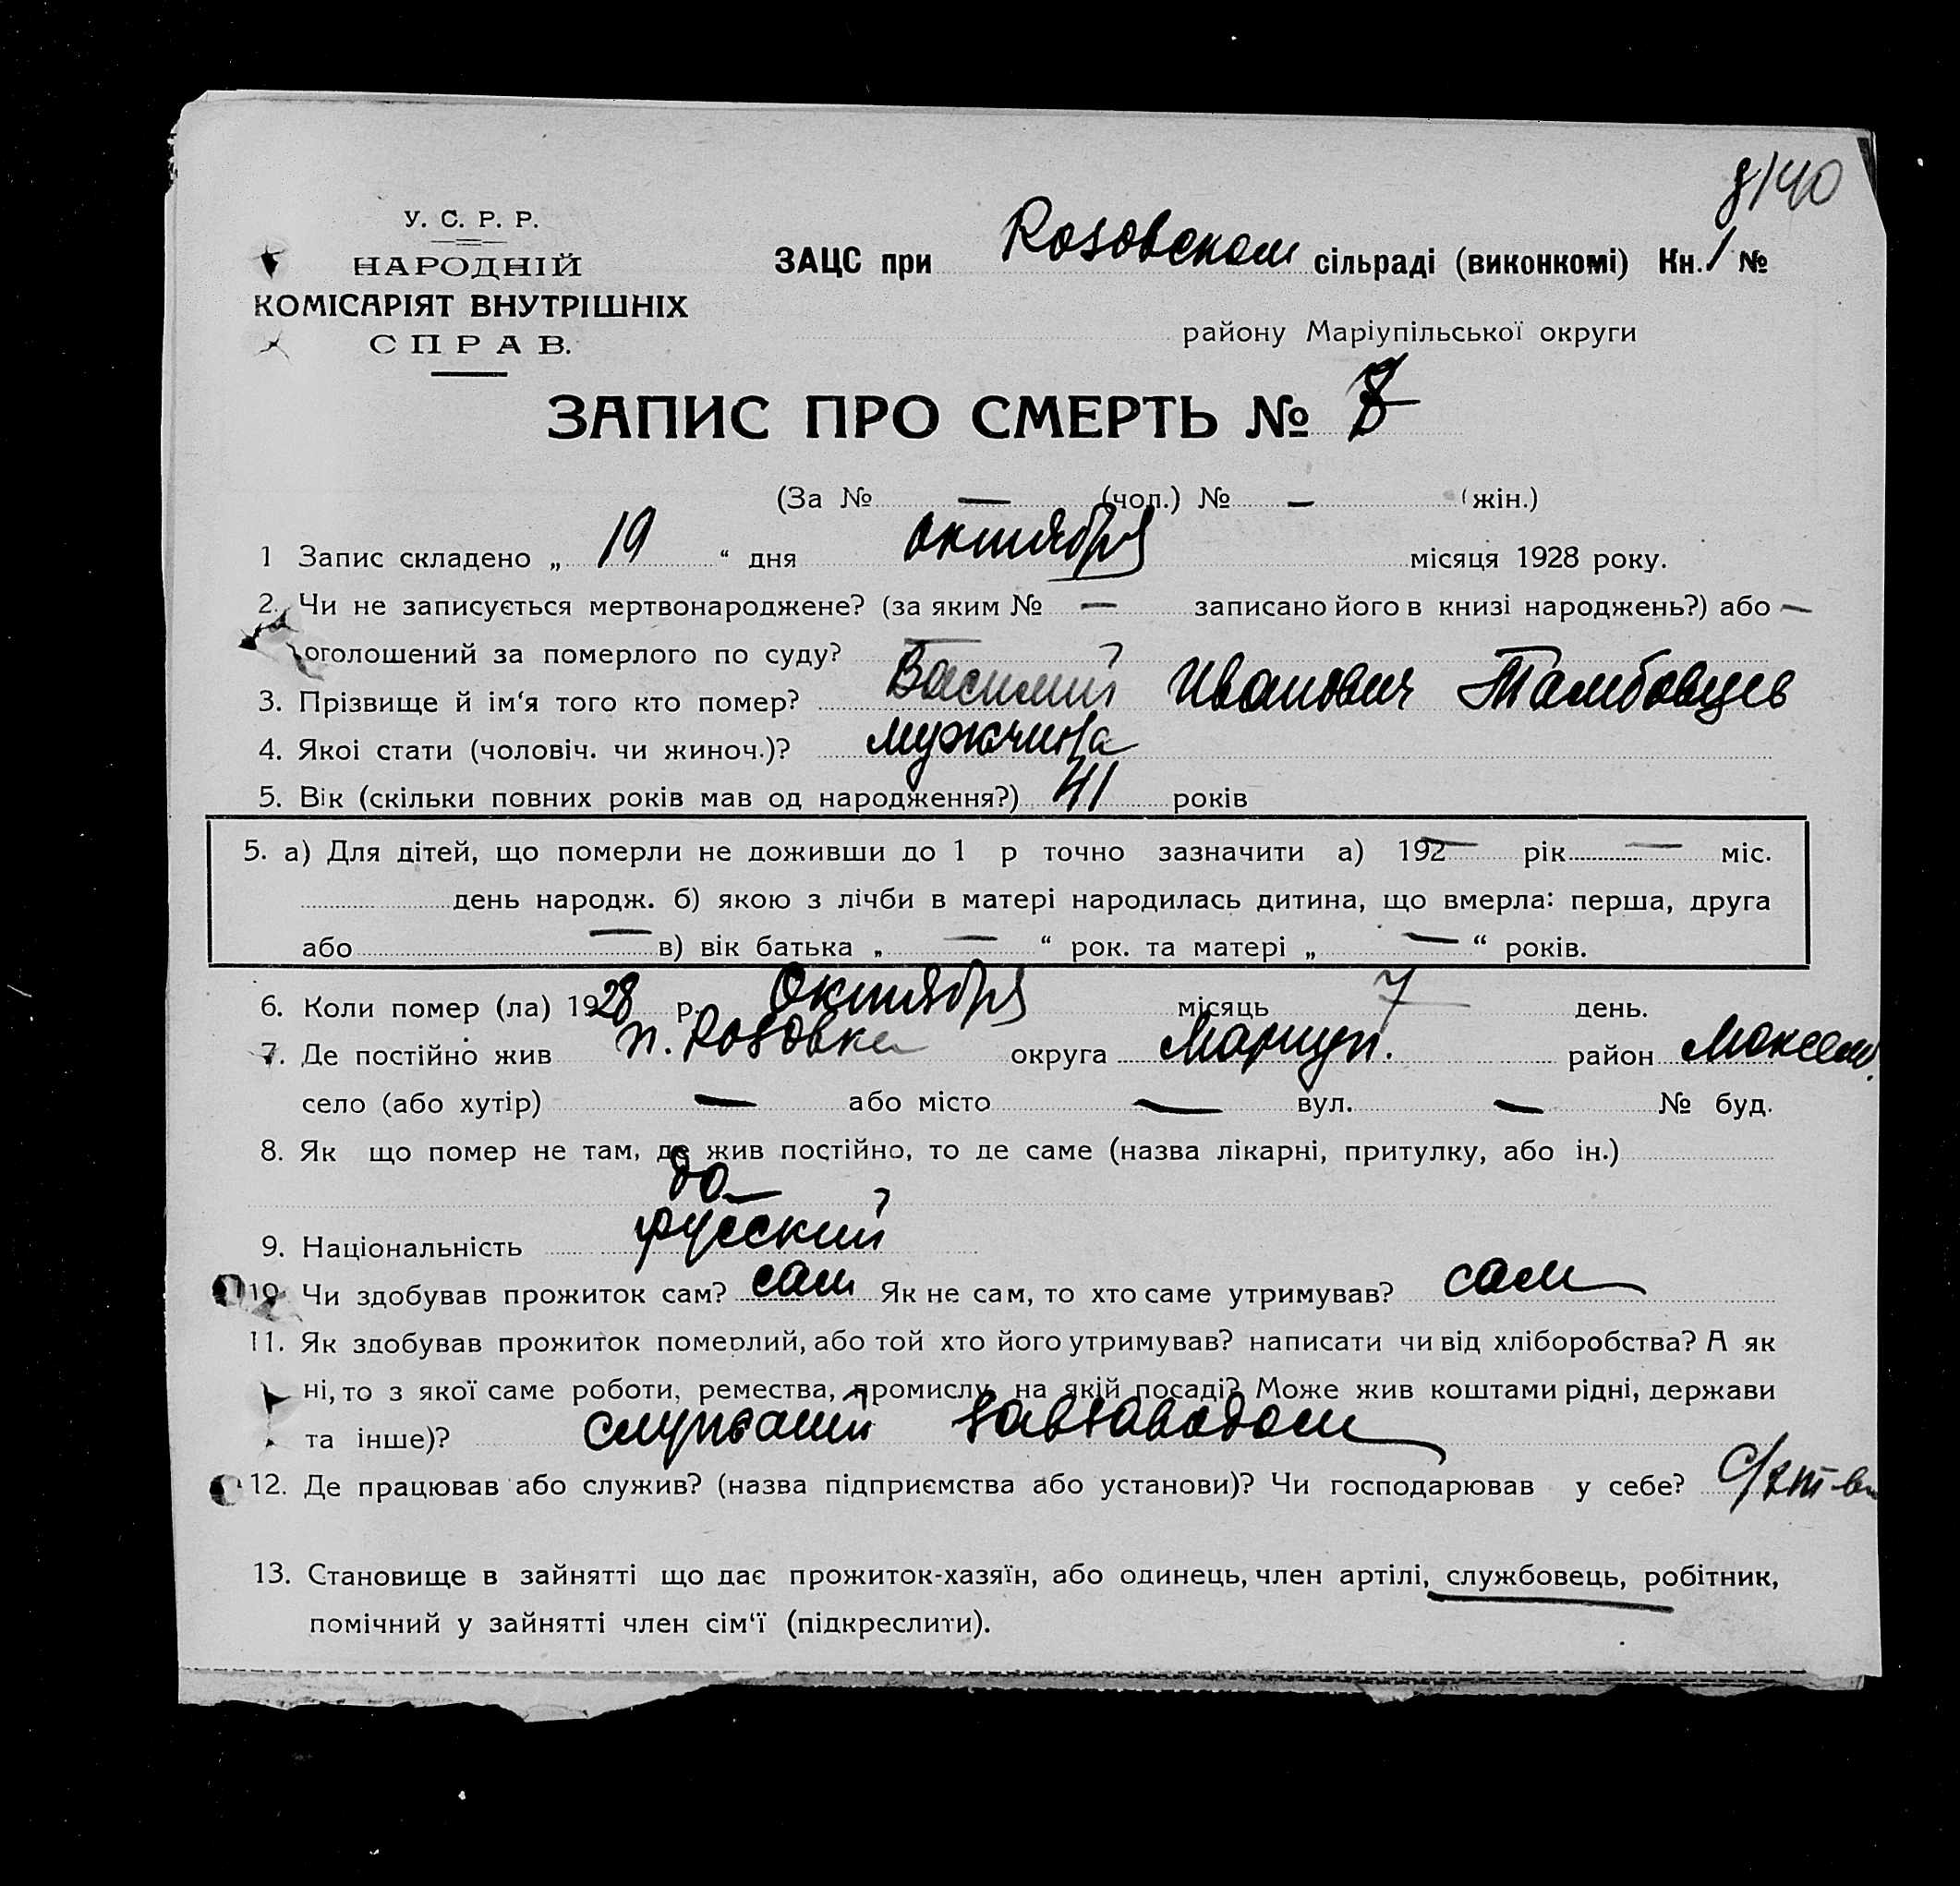 8/40
У. С. Р. Р.
НАРОДНІЙ
КОМІСАРІЯТ ВНУТРІШНІХ
СПРАВ.
ЗАЦС при Розовском сільраді (виконкомі) Кн. 1 №
району Маріупільської округи
ЗАПИС ПРО СМЕРТЬ №
(За № — (чол.) № — (жін.)
1 Запис складено „ 19 “ дня октября місяця 1928 року.
2. Чи не записується мертвонароджене? (за яким № — записано його в книзі народжень?) або —
оголошений за померлого по суду?
3. Прізвище й ім‘я того кто помер? Василий Иванович Тамбовцев
4. Якоі стати (чоловіч. чи жиноч.)? мужчина
5. Вік (скільки повних років мав од народження?) 41 років
5. а) Для дітей, що померли не доживши до 1 р точно зазначити а) 192— рік — міс.
день народж. б) якою з лічби в матері народилась дитина, що вмерла: перша, друга
або — в) вік батька „ — “ рок. та матері „ — “ років.
6. Коли помер (ла) 1928 р. Октября місяць 7 день.
7. Де постійно жив п. Розовка округа Мариуп. район
село (або хутір) — або місто — вул. — № буд.
8. Як що помер не там, де жив постійно, то де саме (назва лікарні, притулку, або ін.)
до—
9. Національність русский
10. Чи здобував прожиток сам? сам Як не сам, то хто саме утримував? сам
11. Як здобував прожиток померлий, або той хто його утримував? написати чи від хліборобства? А як
ні, то з якої саме роботи, ремества, промислу, на якій посаді? Може жив коштами рідні, держави
та інше)? служащий
12. Де працював або служив? (назва підприємства або установи)? Чи господарював у себе?
13. Становище в зайнятті що дає прожиток-хазяїн, або одинець, член артілі, службовець, робітник,
помічний у зайнятті член сім‘ї (підкреслити).